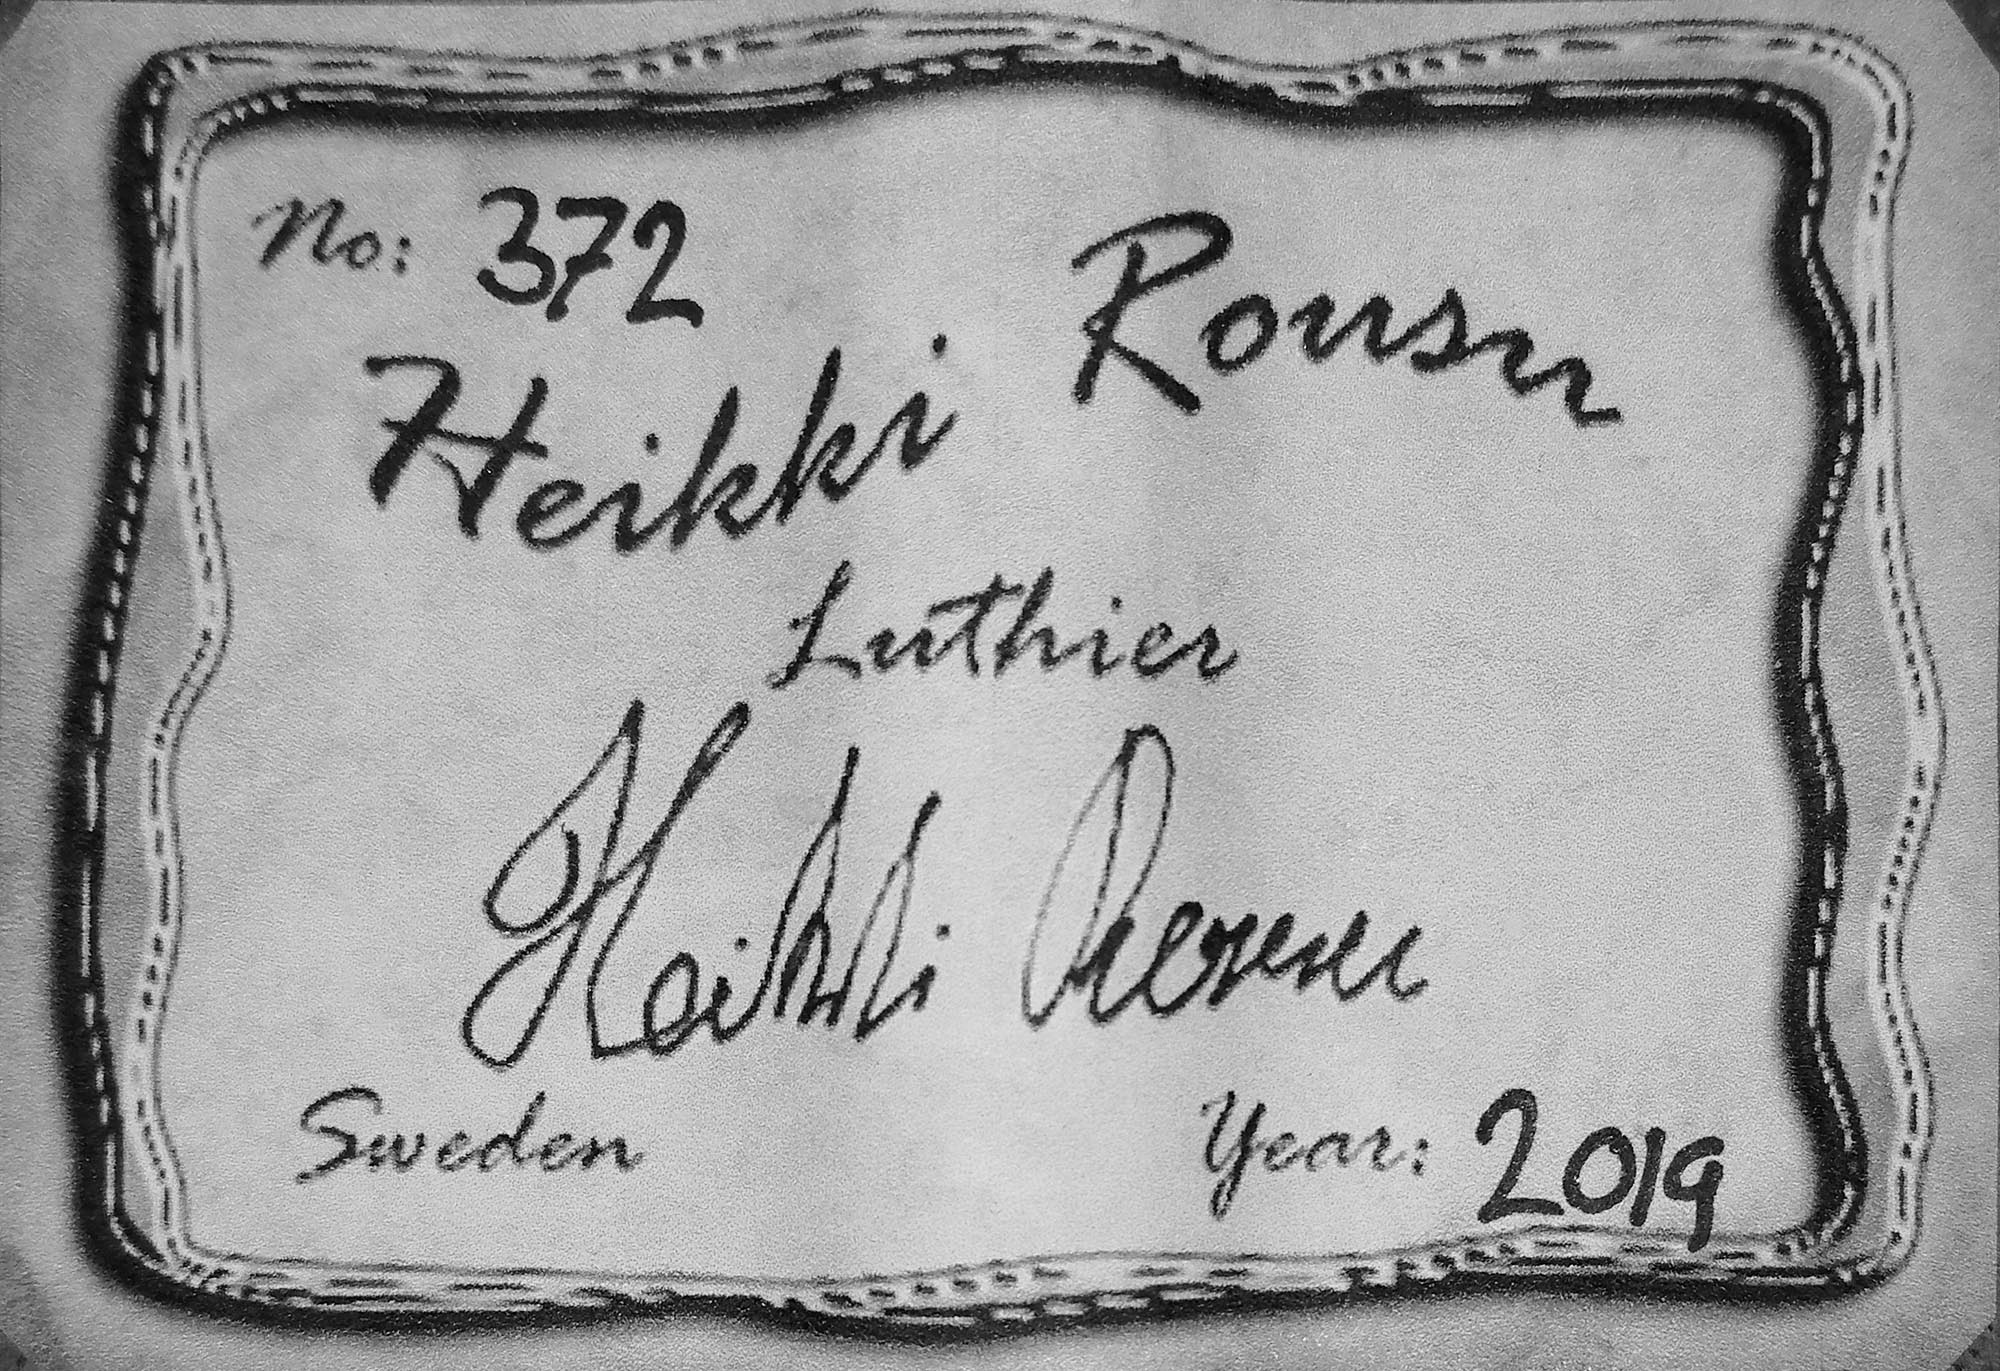 No: 372
Heikki Rousu
Luthier
Heikki Rousu
Sweden
Year: 2019